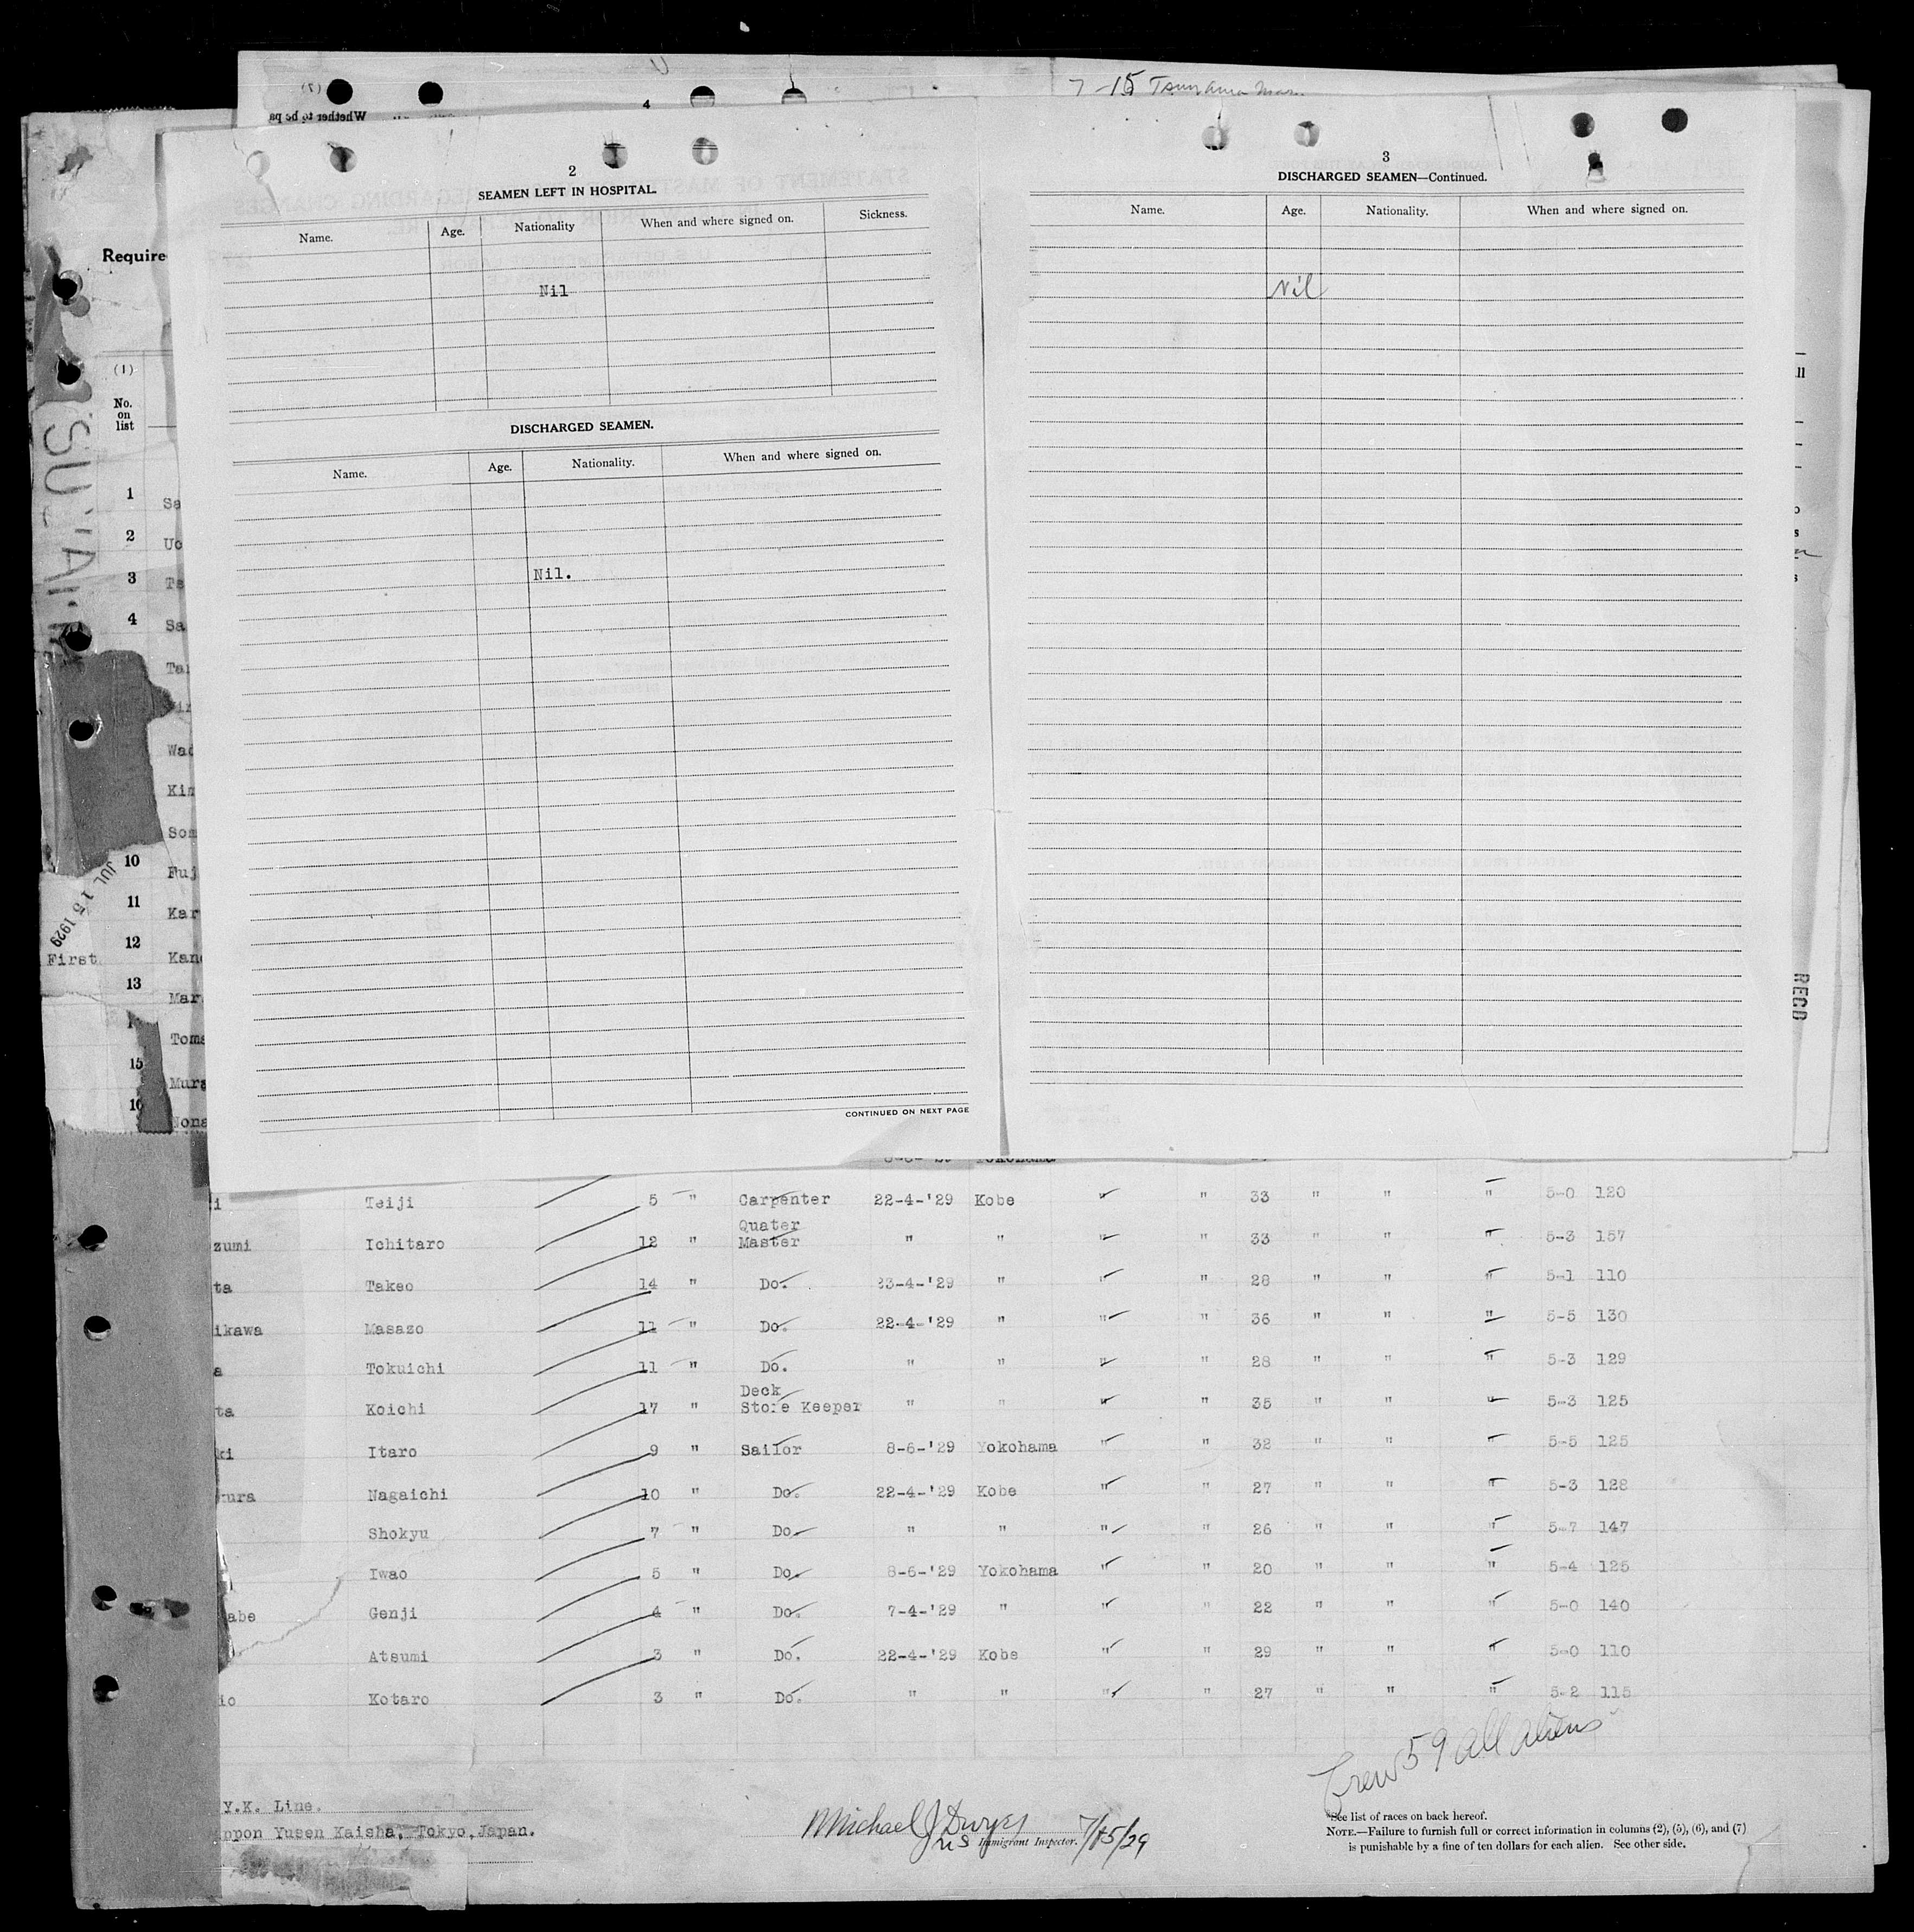 7-15
(7)
Whether to be pa
4
2
SEAMEN LEFT IN HOSPITAL.
Name. Age. Nationality When and where signed on. Sickness.
Nil
DISCHARGED SEAMEN.
Name. Age. Nationality. When and where signed on.
Nil.
CONTINUED ON NEXT PAGE
3
DISCHARGED SEAMEN—Continued.
Name. Age. Nationality. When and where signed on.
Nil
Require
(1)
No.
on
list
1 Sa
2 Uc
3 Ta
4 Sa
Ta
Wad
Kim
Som
10 Fuj
11 Kar
JUL 15 1929
12 Kan
First
13 Mar
Toma
15 Mura
16 Nona
RECD
i Teiji 5 " Carpenter 22-4-'29 Kobe " " 33 " " " 5-0 120
zumi Ichitaro 12 " Quater Master " " " " 33 " " " 5-3 157
ta Takeo 14 " Do. 23-4-'29 " " " 28 " " " 5-1 110
ikawa Masazo 11 " Do. 22-4-'29 " " " 36 " " " 5-5 130
a Tokuichi 11 " Do. " " " " 28 " " " 5-3 129
ta Koichi 17 " Deck Store Keeper " " " " 35 " " " 5-3 125
ki Itaro 9 " Sailor 8-6-'29 Yokohama " " 32 " " " 5-5 125
ura Nagaichi 10 " Do. 22-4-'29 Kobe " " 27 " " " 5-3 128
Shokyu 7 " Do. " " " " 26 " " " 5-7 147
Iwao 5 " Do. 8-6-'29 Yokohama " " 20 " " " 5-4 125
abe Genji 4 " Do. 7-4-'29 " " " 22 " " " 5-0 140
Atsumi 3 " Do. 22-4-'29 Kobe " " 29 " " " 5-0 110
io Kotaro 3 " Do. " " " " 27 " " " 5-2 115
Crew 59 all aliens
Y.K. Line.
ippon Yusen Kaisha, Tokyo, Japan.
Michael J Dwyer
US Immigrant Inspector. 7/15/29
*See list of races on back hereof.
NOTE.—Failure to furnish full or correct information in columns (2), (5), (6), and (7)
is punishable by a fine of ten dollars for each alien. See other side.